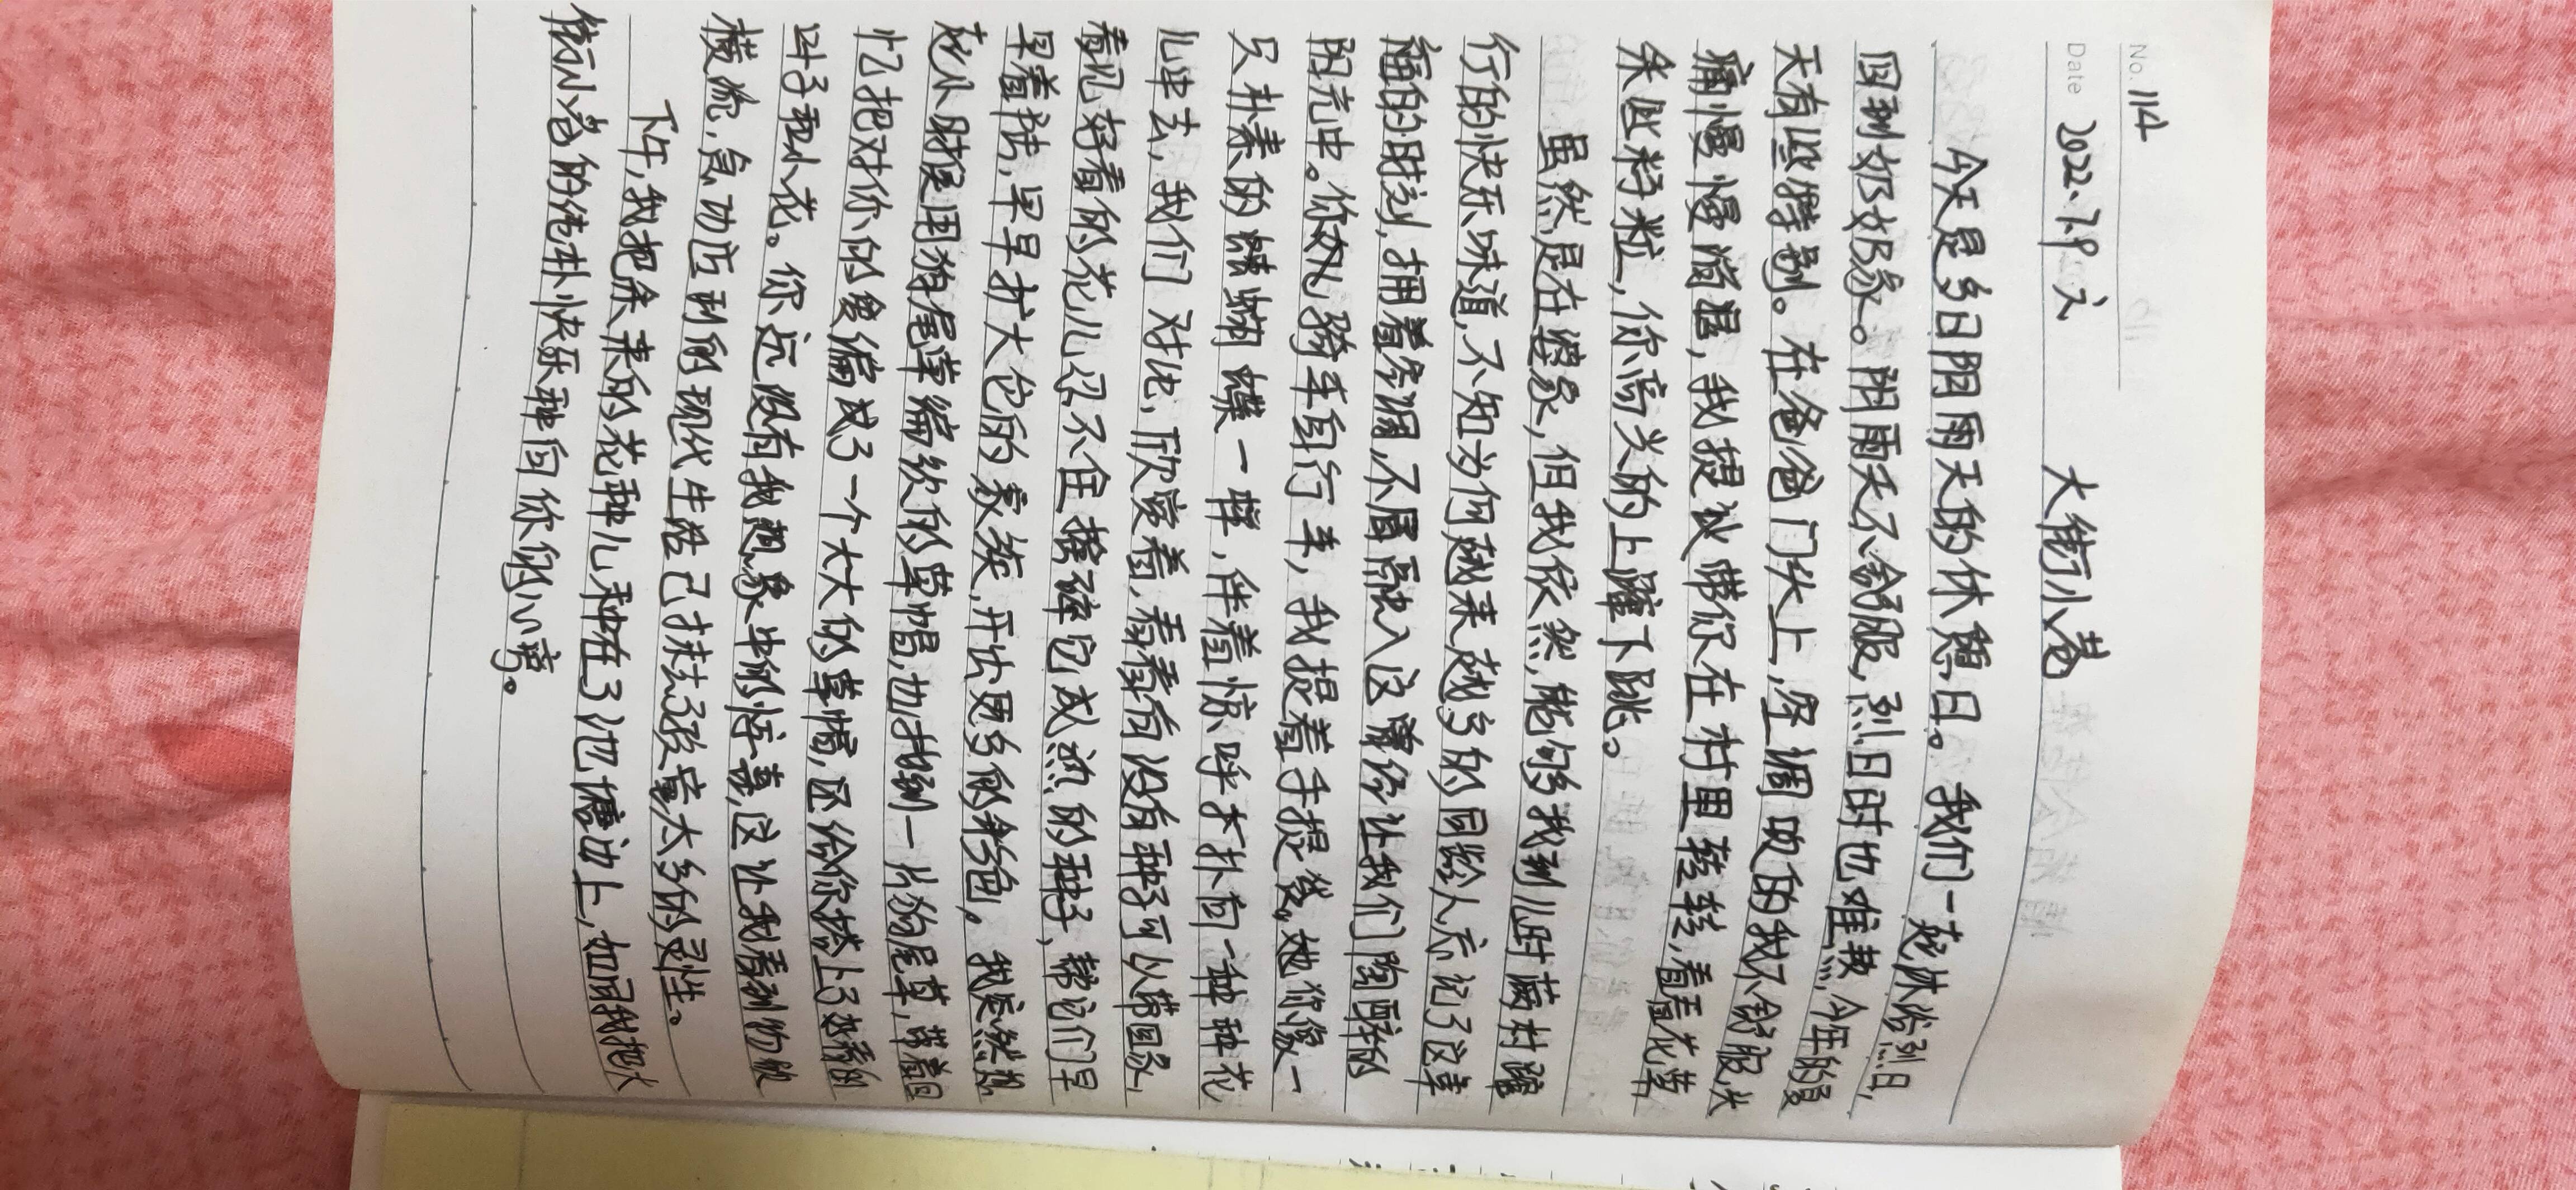 No. 114
Date 2022.7.9 六
大街小巷
今天是多日阴雨天的休憩日。我们一起沐浴烈日,
回到奶奶家。阴雨天不舒服,烈日时也难熬,今年的夏
天有些特别。在爸爸门头上,空调吹的我不舒服,头
痛慢慢消退,我提议带你在村里转转,看看花草
采些籽粒,你高兴的上蹿下跳。
虽然是在婆家,但我依然,能够找到儿时蔺村骑
行的快乐味道,不知为何越来越多的回忆令人忘记了这幸
福的时刻,拥着空调,不屑融入这曾经让我们陶醉的
阳光中。你就骑车自行车,我提着手提袋。她你像一
只朴素的蝴蝶一样,伴着惊呼声扑向一种种花
儿中去,我们对比,欣赏着,看看有没有种子可以带回家,
看见好看的花儿忍不住揉碎它成熟的种子,帮它们早
早着落,早早扩大它的家族,开出更多的彩色。我突然想
起小时候用狗尾草编织的草帽,也找到一片狗尾草,带着回
忆把对你的爱编成了一个大大的草帽,还给你搭上了好看的
叶子和小花。你远没有我想象中的惊喜,这让我看到物欲
横流,急功近利的现代生活已抹去了孩童太多的灵性。
下午,我把余来的花种儿种在了池塘边上,如同我把大
街小巷的淳朴快乐种向你的心窝。